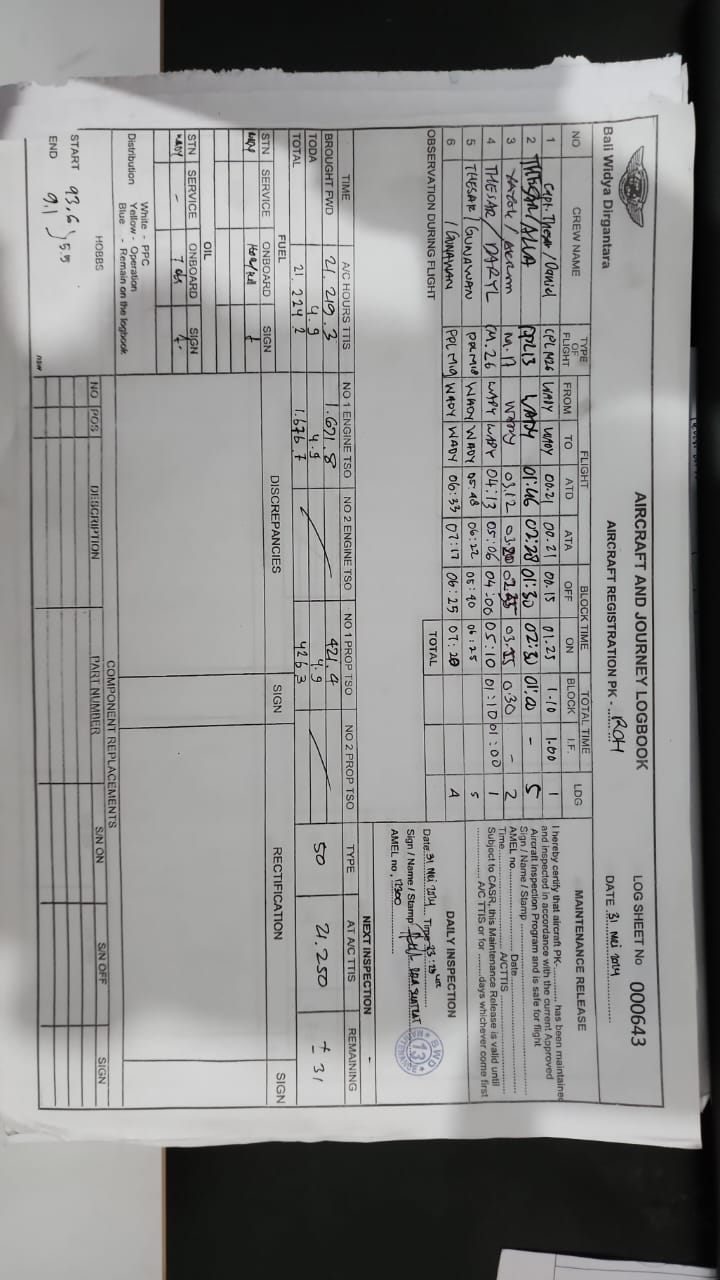 Bali Widya Dirgantara
AIRCRAFT AND JOURNEY LOGBOOK
AIRCRAFT REGISTRATION PK - ROH
LOG SHEET No 000643
DATE 31 Mei 2024
NO CREW NAME TYPE OF FLIGHT FLIGHT BLOCK TIME TOTAL TIME LDG
FROM TO ATD ATA OFF ON BLOCK I.F.
1 Capt. Thesar / Daniel CPL M26 WADY WADY 00.21 00.21 00.15 01.25 1.10 1.00 1
2 THESAR/ALLA PPL13 WADY 01:46 02:28 01:30 02:30 01.00 - 5
3 M.17 WADY 03.12 0.30 - 2
4 THESAR / DARYL M.26 WADY WADY 04:13 05:06 04:00 05:10 01:10 01:00 1
5 THESAR / GUNAWAN PPL M18 WADY WADY 05:48 06:22 05:40 06:25 5
6 / GUNAWAN PPL M19 WADY WADY 06:33 07:17 06:25 07:20 4
OBSERVATION DURING FLIGHT TOTAL
MAINTENANCE RELEASE
I hereby certify that aircraft PK-........... has been maintained
and inspected in accordance with the current Approved
Aircraft Inspection Program and is safe for flight
Sign / Name / Stamp
AMEL no. Date
Time A/CTTIS
Subject to CASR, this Maintenance Release is valid until
A/C TTIS or for ........days whichever come first
DAILY INSPECTION
Date 31 Mei 2024 Time 23:
Sign / Name / Stamp
AMEL no.
13
NEXT INSPECTION
TYPE AT A/C TTIS REMAINING
50 21.250 ± 31
TIME A/C HOURS TTIS NO 1 ENGINE TSO NO 2 ENGINE TSO NO 1 PROP TSO NO 2 PROP TSO
BROUGHT FWD 21.219.3 1.671.8 421.4
TODA 4.9 4.9 4.9
TOTAL 21.224.2 1.676.7 426.3
FUEL DISCREPANCIES SIGN RECTIFICATION SIGN
STN SERVICE ONBOARD SIGN
WADY
OIL
STN SERVICE ONBOARD SIGN
WADY - 7 qts
Distribution White - PPC
Yellow - Operation
Blue - Remain on the logbook
HOBBS
START 93.6
5.5
END 9.1
COMPONENT REPLACEMENTS
NO POS DESCRIPTION PART NUMBER S/N ON S/N OFF SIGN